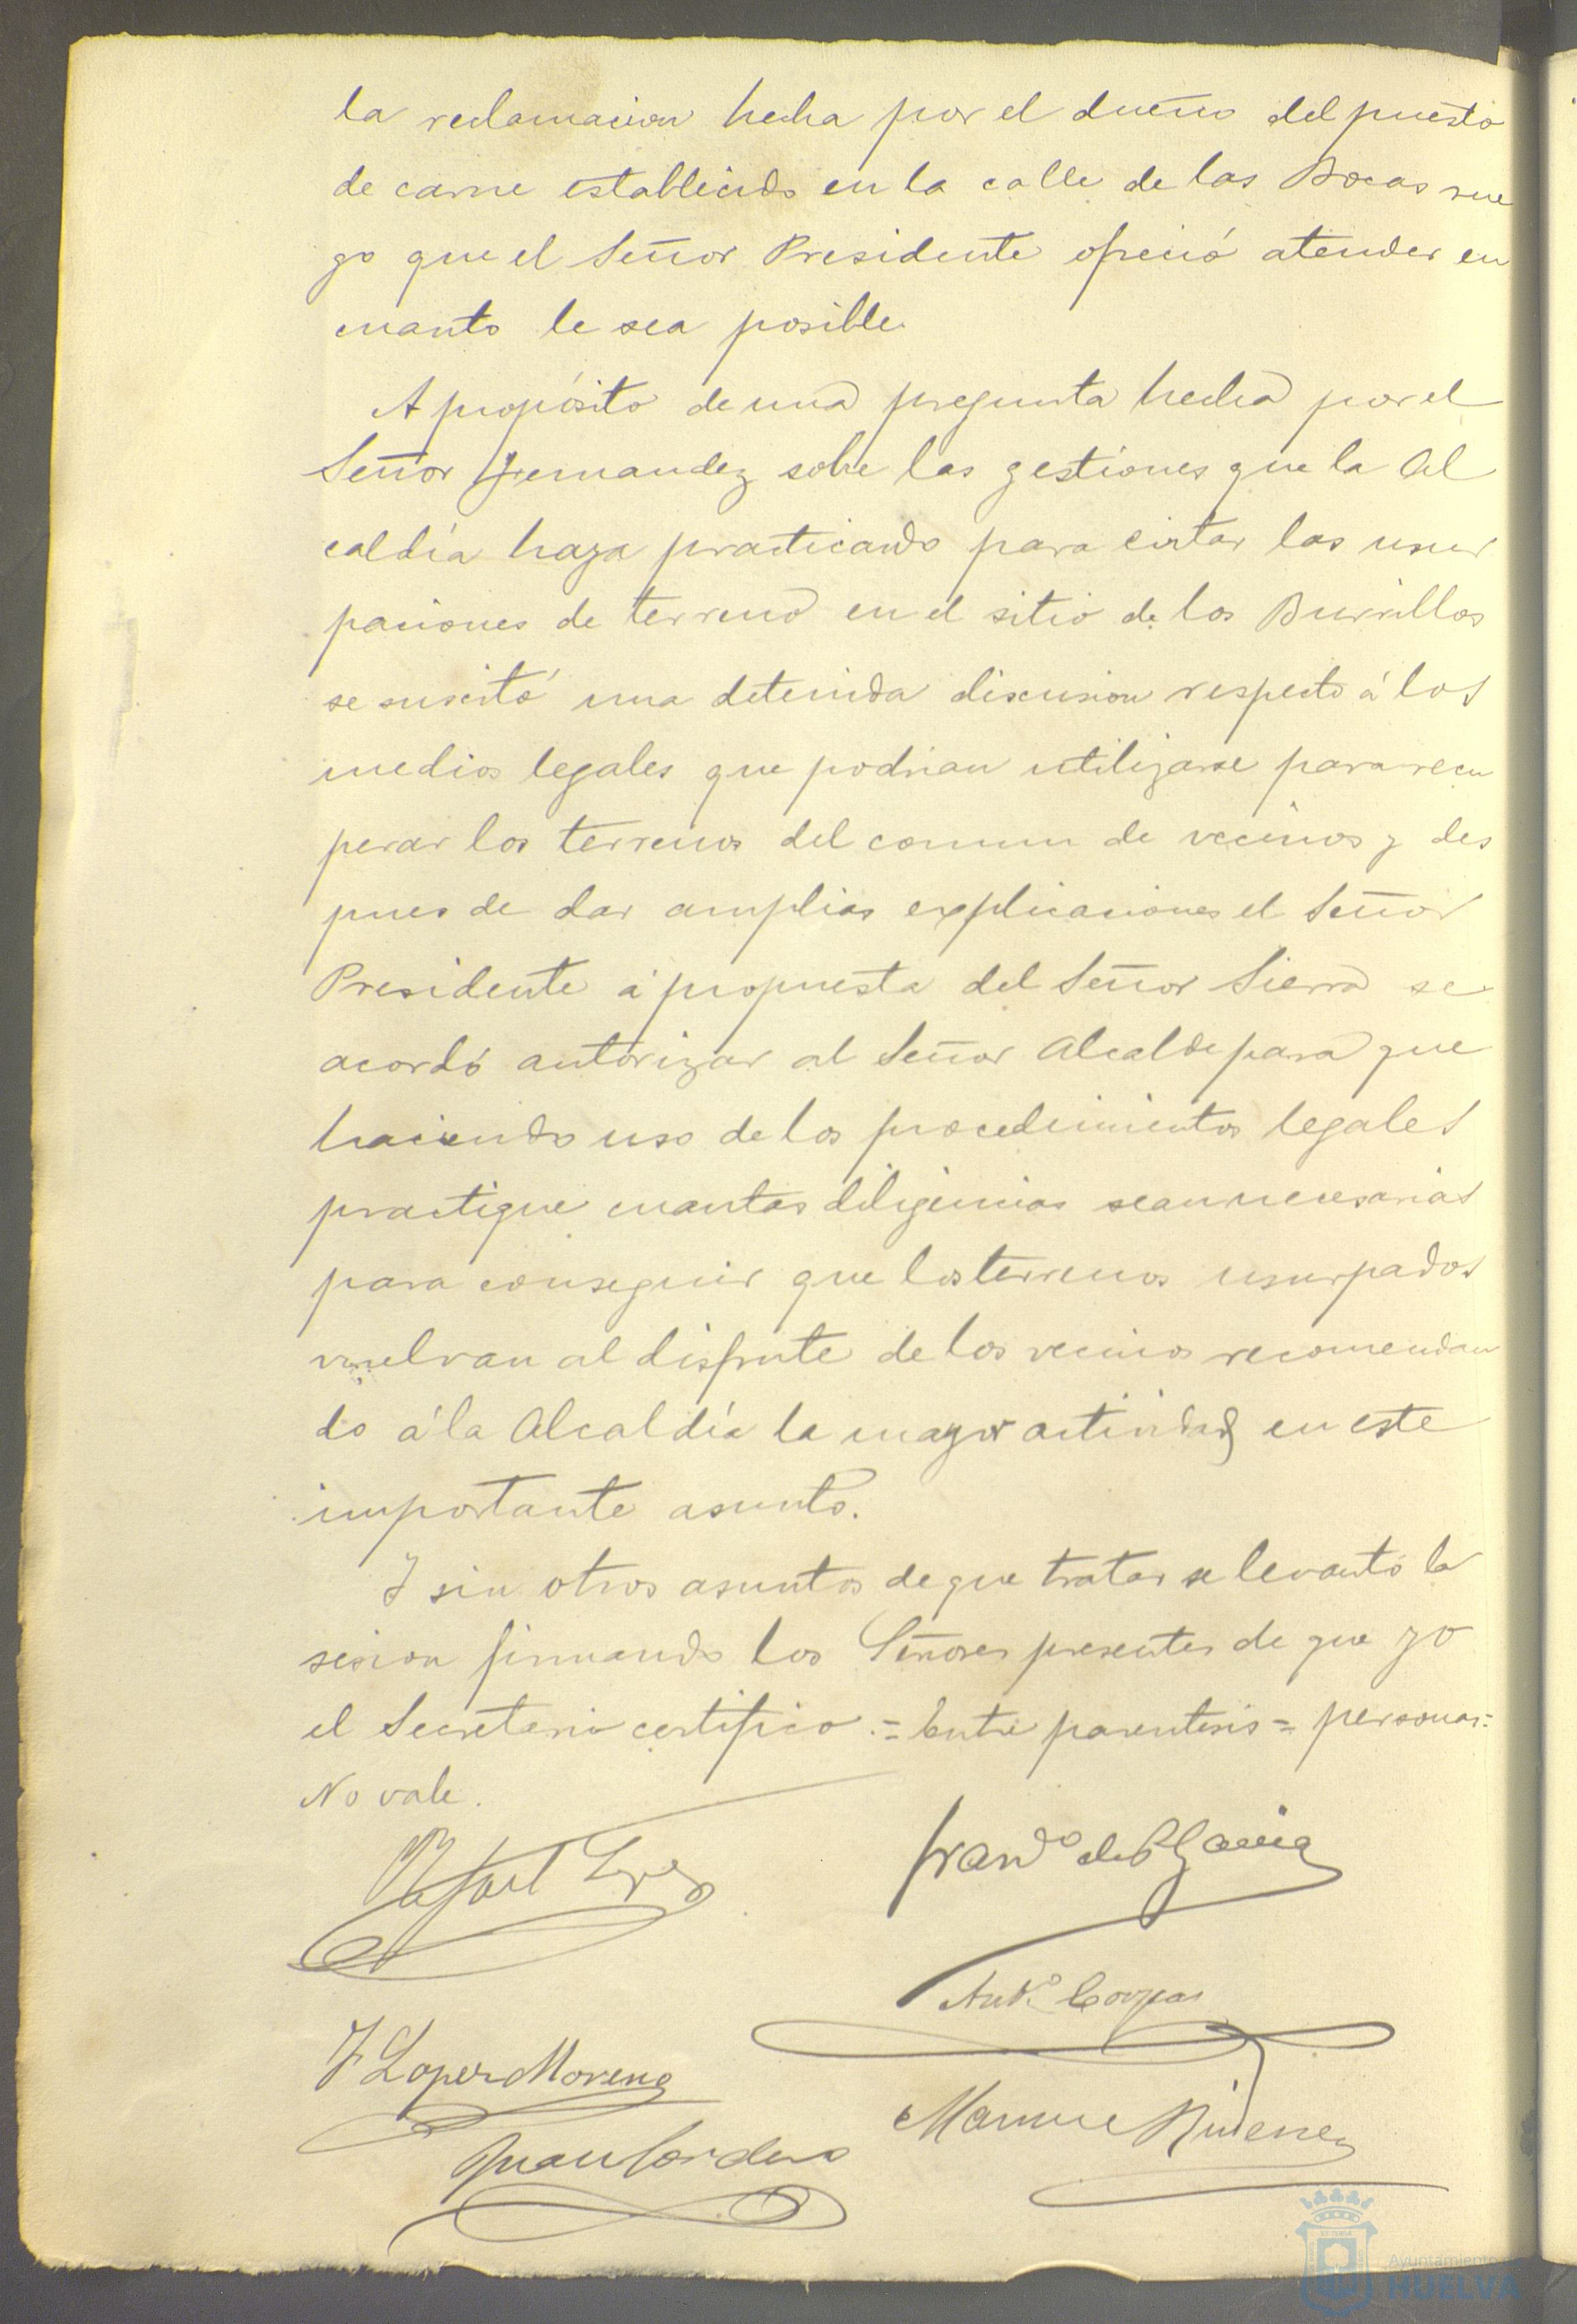 la reclamacion hecha por el dueño del puesto
de carne establecido en la calle de las Bocas rue
go que el Señor Presidente ofreció atender en
cuanto le sea posible.
A propósito de una pregunta hecha por el
Señor Fernandez sobre las gestiones que la Al
caldía haya practicando para evitar las usur
paciones de terreno en el sitio de los Burrillos
se suscitó una detenida discusion respecto á los
medios legales que podrian utilizarse para recu
perar los terrenos del comun de vecinos y des
pues de dar amplias explicaciones el Señor
Presidente á propuesta del Señor Sierra se
acordó autorizar al Señor Alcalde para que
haciendo uso de los procedimientos legales
practique cuantas diligencias sean necesarias
para conseguir que los terrenos usurpados
vuelvan al disfrute de los vecinos recomendan
do á la Alcaldía la mayor actividad en este
importante asunto.
Y sin otros asuntos de que tratar se levantó la
sesion firmando los Señores presentes de que yo
el Secretario certifico.= Entre parentesis = personas=
No vale.
Rafael Lopez
Franco de P Garcia
Anto Corpas
J Lopez Moreno
Manuel Jimenez
Juan Cordero
Ayuntamiento
HUELVA